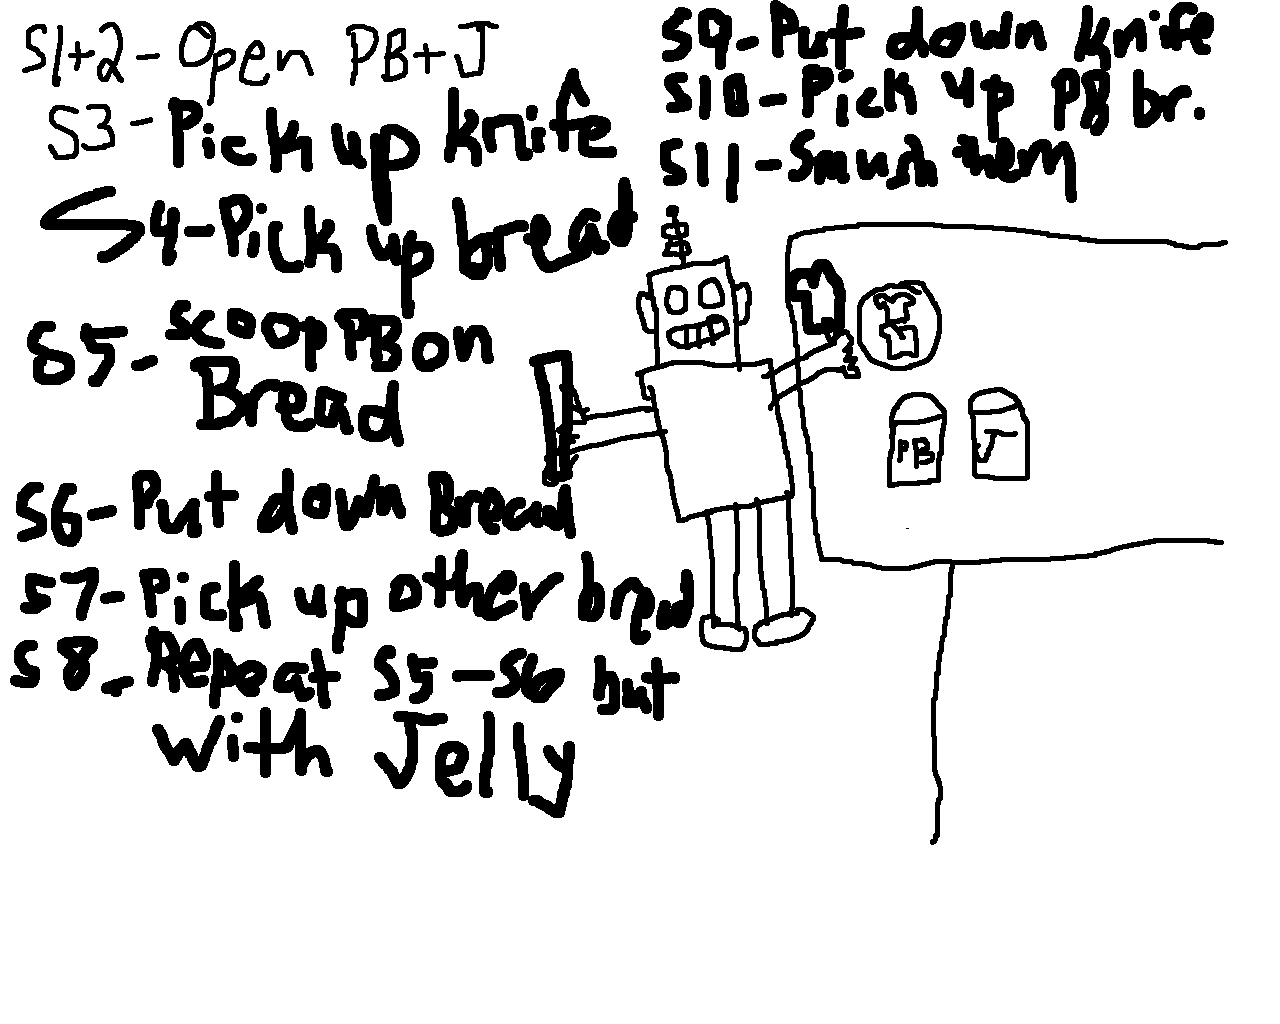 S1+2 - Open PB+J
S3 - Pick up knife
S4 - Pick up bread
S5 - scoop PB on
Bread
S6 - Put down Bread
S7 - Pick up other bread
S8 - Repeat S5 - S6 but
with Jelly
S9 - Put down knife
S10 - Pick up PB br.
S11 - Smush them
PB
J